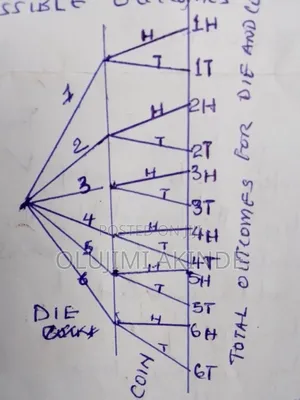 POSSIBLE OUTCOMES
1
H
1H
T
1T
2
H
2H
T
2T
3
H
3H
T
3T
4
H
4H
T
4T
5
H
5H
T
5T
6
H
6H
T
6T
DIE
COIN
TOTAL OUTCOMES FOR DIE AND
POSTED ON
OLUJIMI AKINDE